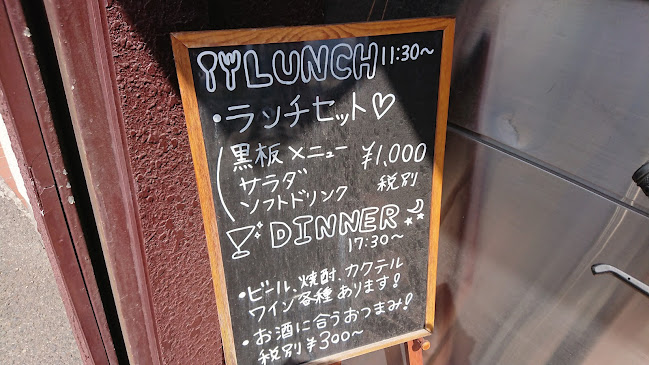 LUNCH 11:30~
・ランチセット♡
黒板メニュー ¥1,000
サラダ 税別
ソフトドリンク
DINNER
17:30~
・ビール、焼酎、カクテル
ワイン各種あります!
・お酒に合うおつまみ!
税別¥300~